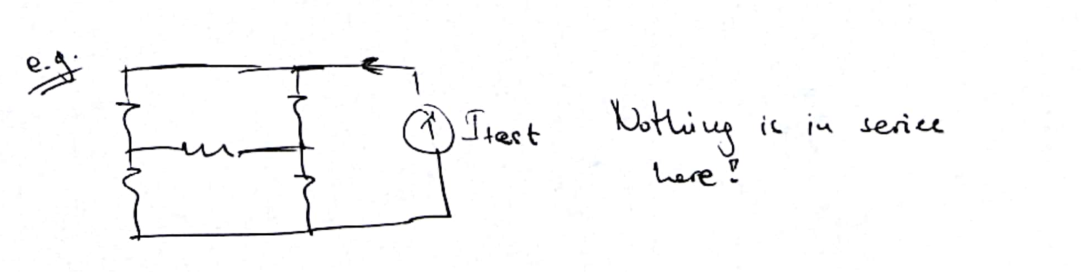 e.g.
Itest
Nothing is in series
here!